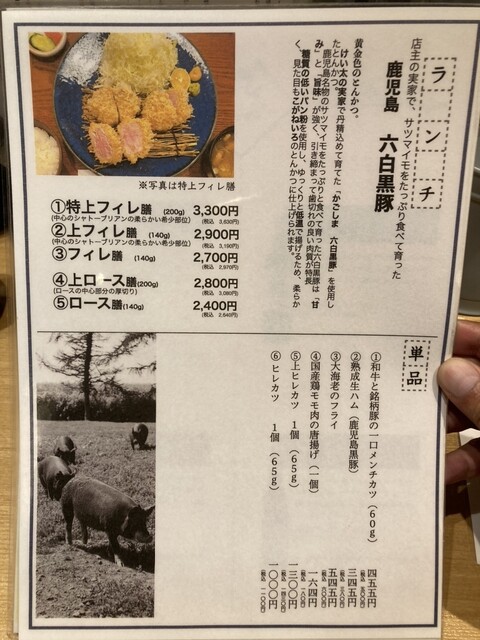 ランチ
店主の実家で、サツマイモをたっぷり食べて育った
鹿児島 六白黒豚
黄金色のとんかつ。
けい太の実家で丹精込めて育てた「かごしま 六白黒豚」を使用し
たとんかつ。
鹿児島名物のサツマイモをたっぷりと食べて育った六白黒豚は「甘
み」と「旨味」が強く、引き締まって歯切れの良い肉質が特長
糖質の低いパン粉を使用し、ゆっくりと低温で揚げるため、柔らか
く、見た目もこがねいろのとんかつに仕上げられます。
※写真は特上フィレ膳
①特上フィレ膳 (200g) 3,300円
(中心のシャトーブリアンの柔らかい希少部位) (税込 3,630円)
②上フィレ膳 (140g) 2,900円
(中心のシャトーブリアンの柔らかい希少部位) (税込 3,190円)
③フィレ膳 (140g) 2,700円
(税込 2,970円)
④上ロース膳(200g) 2,800円
(ロースの中心部分の厚切り) (税込 3,080円)
⑤ロース膳(140g) 2,400円
(税込 2,640円)
単品
①和牛と銘柄豚の一口メンチカツ(60g) 四五五円
②熟成生ハム(鹿児島黒豚) 三四五円
③大海老のフライ 五四五円
④国産鶏モモ肉の唐揚げ(一個) 一六四円
⑤上ヒレカツ 1個(65g) 一三〇〇円
⑥ヒレカツ 1個(65g) 一〇〇〇円
(税込 一一〇〇円)